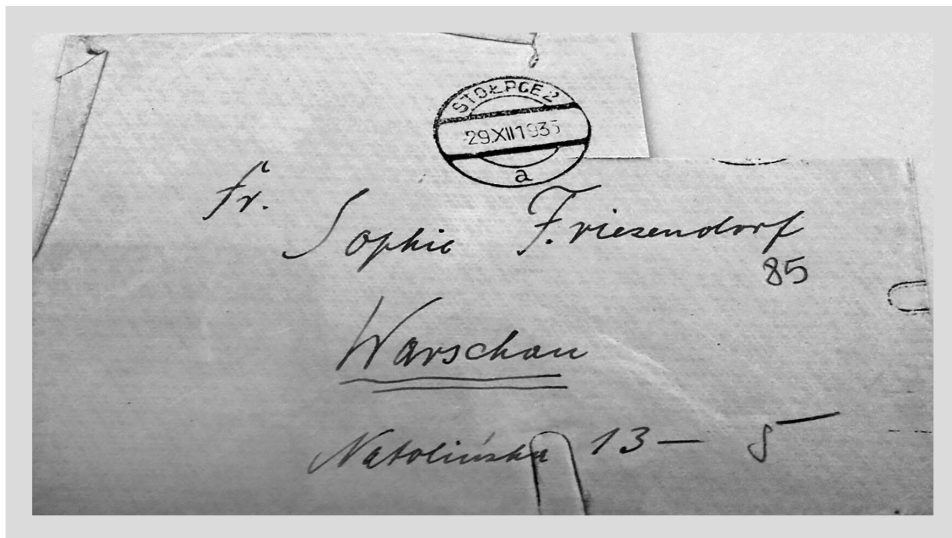 STOŁPCE 2
29.XII 1935
a
Fr.
Sophie Friesendorf
85
Warschau
Natolińska 13 — 5